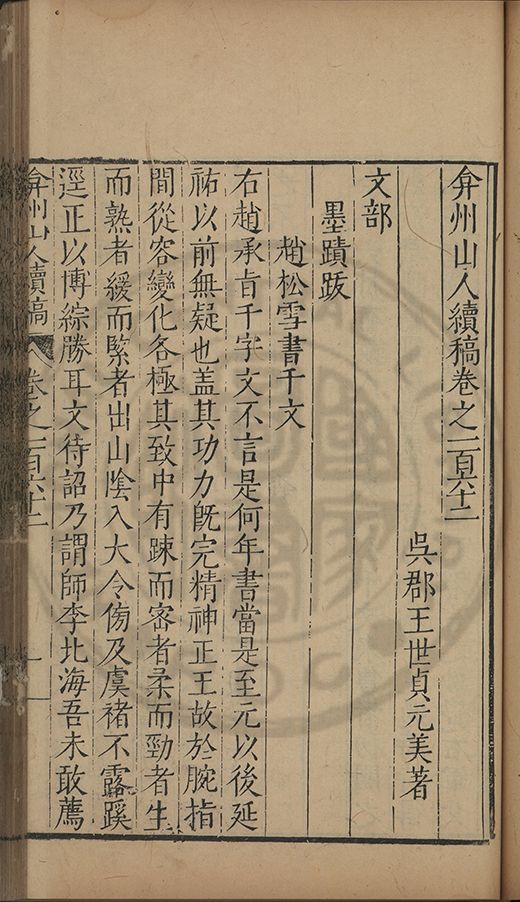 弇州山人續稿卷之一百六十二
吳郡王世貞元美著
文部
墨蹟跋
趙松雪書千文
右趙承旨千字文不言是何年書當是至元以後延
祐以前無疑也盖其功力旣完精神正王故於腕指
間從容變化各極其致中有踈而密者柔而勁者生
而熟者緩而緊者出山陰入大令傍及虞褚不露蹊
逕正以博綜勝耳文待詔乃謂師李北海吾未敢薦
弇州山人續稿 卷之一百六十二 一